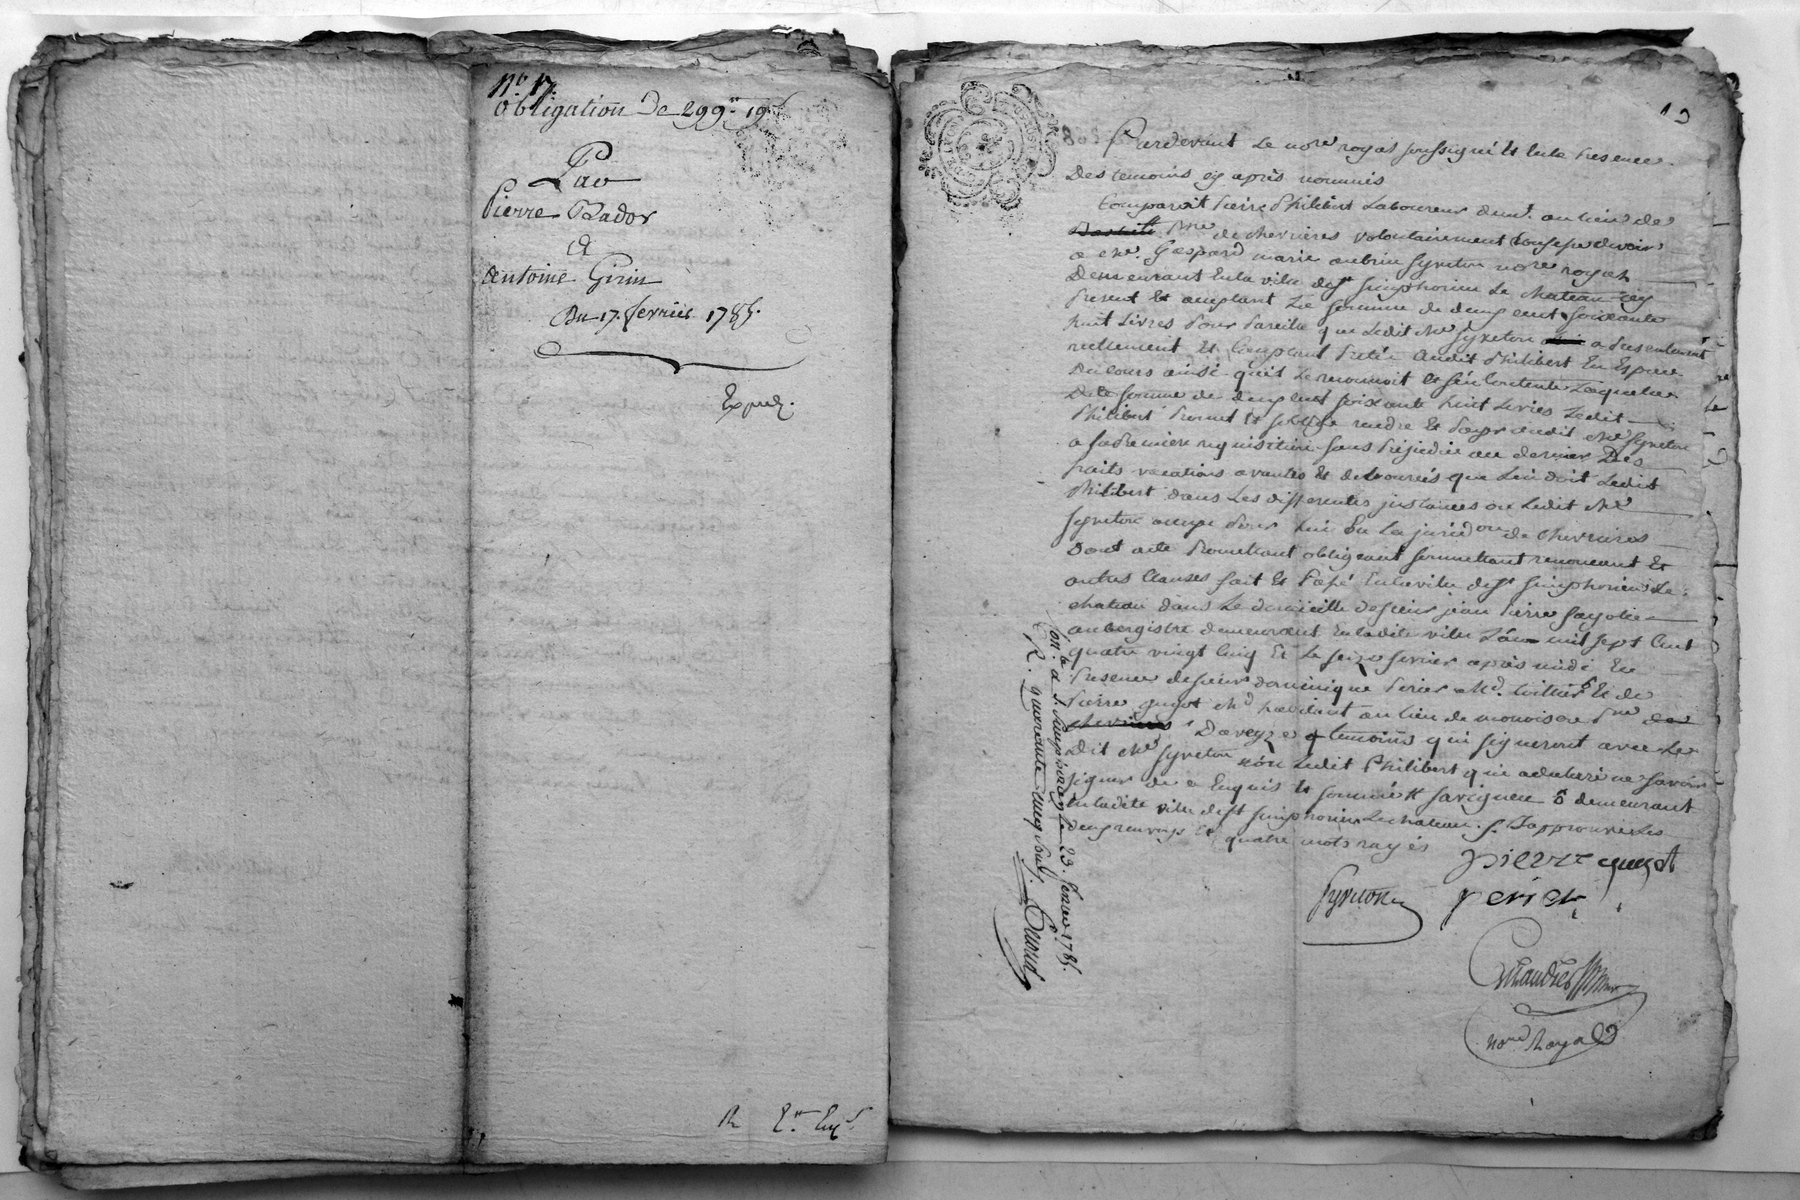 No. 17.
Obligation De 299tt 19s
Par
Pierre Bador
A
Antoine Girin
Du 17. fevrier 1785.
Exped.
R
13
Pardevant Le nore royal soussigné Et En la presence
Des temoins cy après nommés
Comparoit Pierre Philibert Laboureur demt. au lieu de
psse de chevrieres volontairement Confesse devoir
a Me. Gaspard marie aubrin Syveton nore royal
Demeurant En la ville de st simphorien Le chateau icy
Present Et acceptant La somme de deux cent soixante
huit Livres Pour Pareille que Ledit Me Syveton a Presentement
reellement Et Comptant Preté Audit Philibert En Espece
Du cours ainsi qu'il Le reconnoit Et s'en Contente Laquelle
Dite somme de deux Cent soixante huit Livres Ledit
Philibert Promet Et s'oblige rendre Et Payer audit Me Syveton
a sa Premiere requisition sans Prejudice au dernier Des
fraits vacations avances Et deboursés que Lui doit Ledit
Philibert dans Les differentes instances ou Ledit Me
Syveton occupe Pour Lui En La juridon de chevrieres
Dont acte Promettant obligeant soumettant renonceant Et
autres Clauses fait Et Passé En la ville de st simphorien Le
chateau dans Le domicille de sieur jean Pierre fayolle
aubergiste demeurant En ladite ville L'an mil sept Cent
quatre vingt Cinq Et Le seize fevrier après midi En
Presence de sieur dominique Perier Md. Et de
Pierre guyot Md habitant au lieu de psse de
chevrieres Daveyze temoins qui signeront avec Le
Dit Me Syveton non Ledit Philibert qui a declaré ne savoir
signer de ce Enquis Et sommé demeurant
En ladite ville de st simphorien Le chateau. J'approuve Les
deux renvoys Et quatre mots rayés
pierre guyot
Syveton
perier
nore Royal
Con. a St. Simphorien le 23. fevrier 1785.
R. quarante cinq sols.